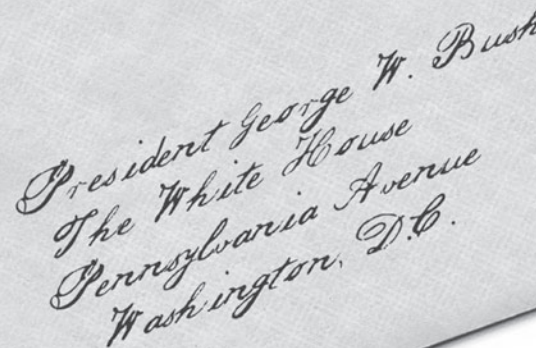 President George W. Bush
The White House
Pennsylvania Avenue
Washington, D.C.